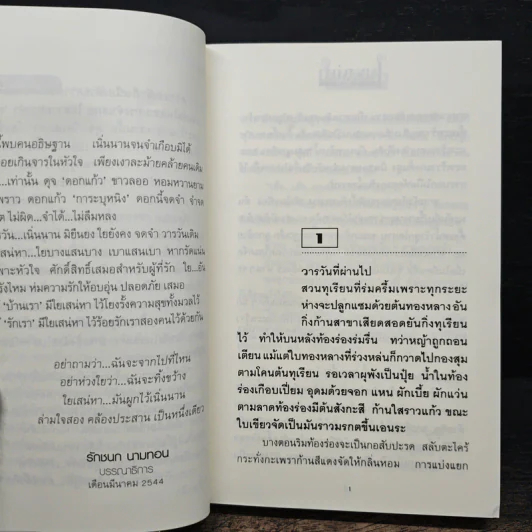 พบคนอธิษฐาน เนิ่นนานจนจำเกือบมิได้
อยเกินจารในหัวใจ เพียงเงาละม้ายคล้ายคนเดิม
...เท่านั้น ดุจ "ดอกแก้ว" ขาวลออ หอมหวาน
พราว ดอกแก้ว "การะบุหนิง" ดอกนี้จดจำ
ไม่ผิด...จำได้...ไม่ลืมหลง
วัน...เนิ่นนาน มิยืนยง ใยยังคง จดจำ วารวันเดิม
สน่หา...ใยบางแสนบาง เบาแสนเบา หากรัดแน่น
พาะหัวใจ ศักดิ์สิทธิ์เสมอสำหรับผู้ที่รัก ใย...
รังไหม ห่มความรักให้อบอุ่น ปลอดภัย เสมอ
"บ้านเรา" มีใยเสน่หา ไว้โยงรั้งความสุขทั้งมวลไว้
"รักเรา" มีใยเสน่หา ไว้ร้อยรักเราสองคนไว้ด้วยกัน
อย่าถามว่า...ฉันจะจากไปที่ไหน
อย่าห่วงใยว่า...ฉันจะทิ้งขว้าง
ใยเสน่หา...มันผูกไว้เนิ่นนาน
ล่ามใจสอง คล้องประสาน เป็นหนึ่งเดียว
รักชนก นามทอน
บรรณาธิการ
เดือนมีนาคม 2544
1
วารวันที่ผ่านไป
สวนทุเรียนที่ร่มครึ้มเพราะทุกระยะ
ห่างจะปลูกแซมด้วยต้นทองหลาง อัน
กิ่งก้านสาขาเสียดสอดยันกิ่งทุเรียน
ไว้ ทำให้บนหลังท้องร่องร่มรื่น ทว่าหญ้าถูกถอน
เตียน แม้แต่ใบทองหลางที่ร่วงหล่นก็กวาดไปกองสุม
ตามโคนต้นทุเรียน รอเวลาผุพังเป็นปุ๋ย น้ำในท้อง
ร่องเกือบเปี่ยม อุดมด้วยจอก แหน ผักเบี้ย ผักแว่น
ตามลาดท้องร่องมีต้นสังกะสี ก้านใสราวแก้ว ขณะ
ใบเขียวจัดเป็นมันราวมรกตขึ้นเอนระ
บางตอนริมท้องร่องจะเป็นกอสับปะรด สลับตะไคร้
กระทั่งกะเพราก้านสีแดงจัดให้กลิ่นหอม การแบ่งแยก
1